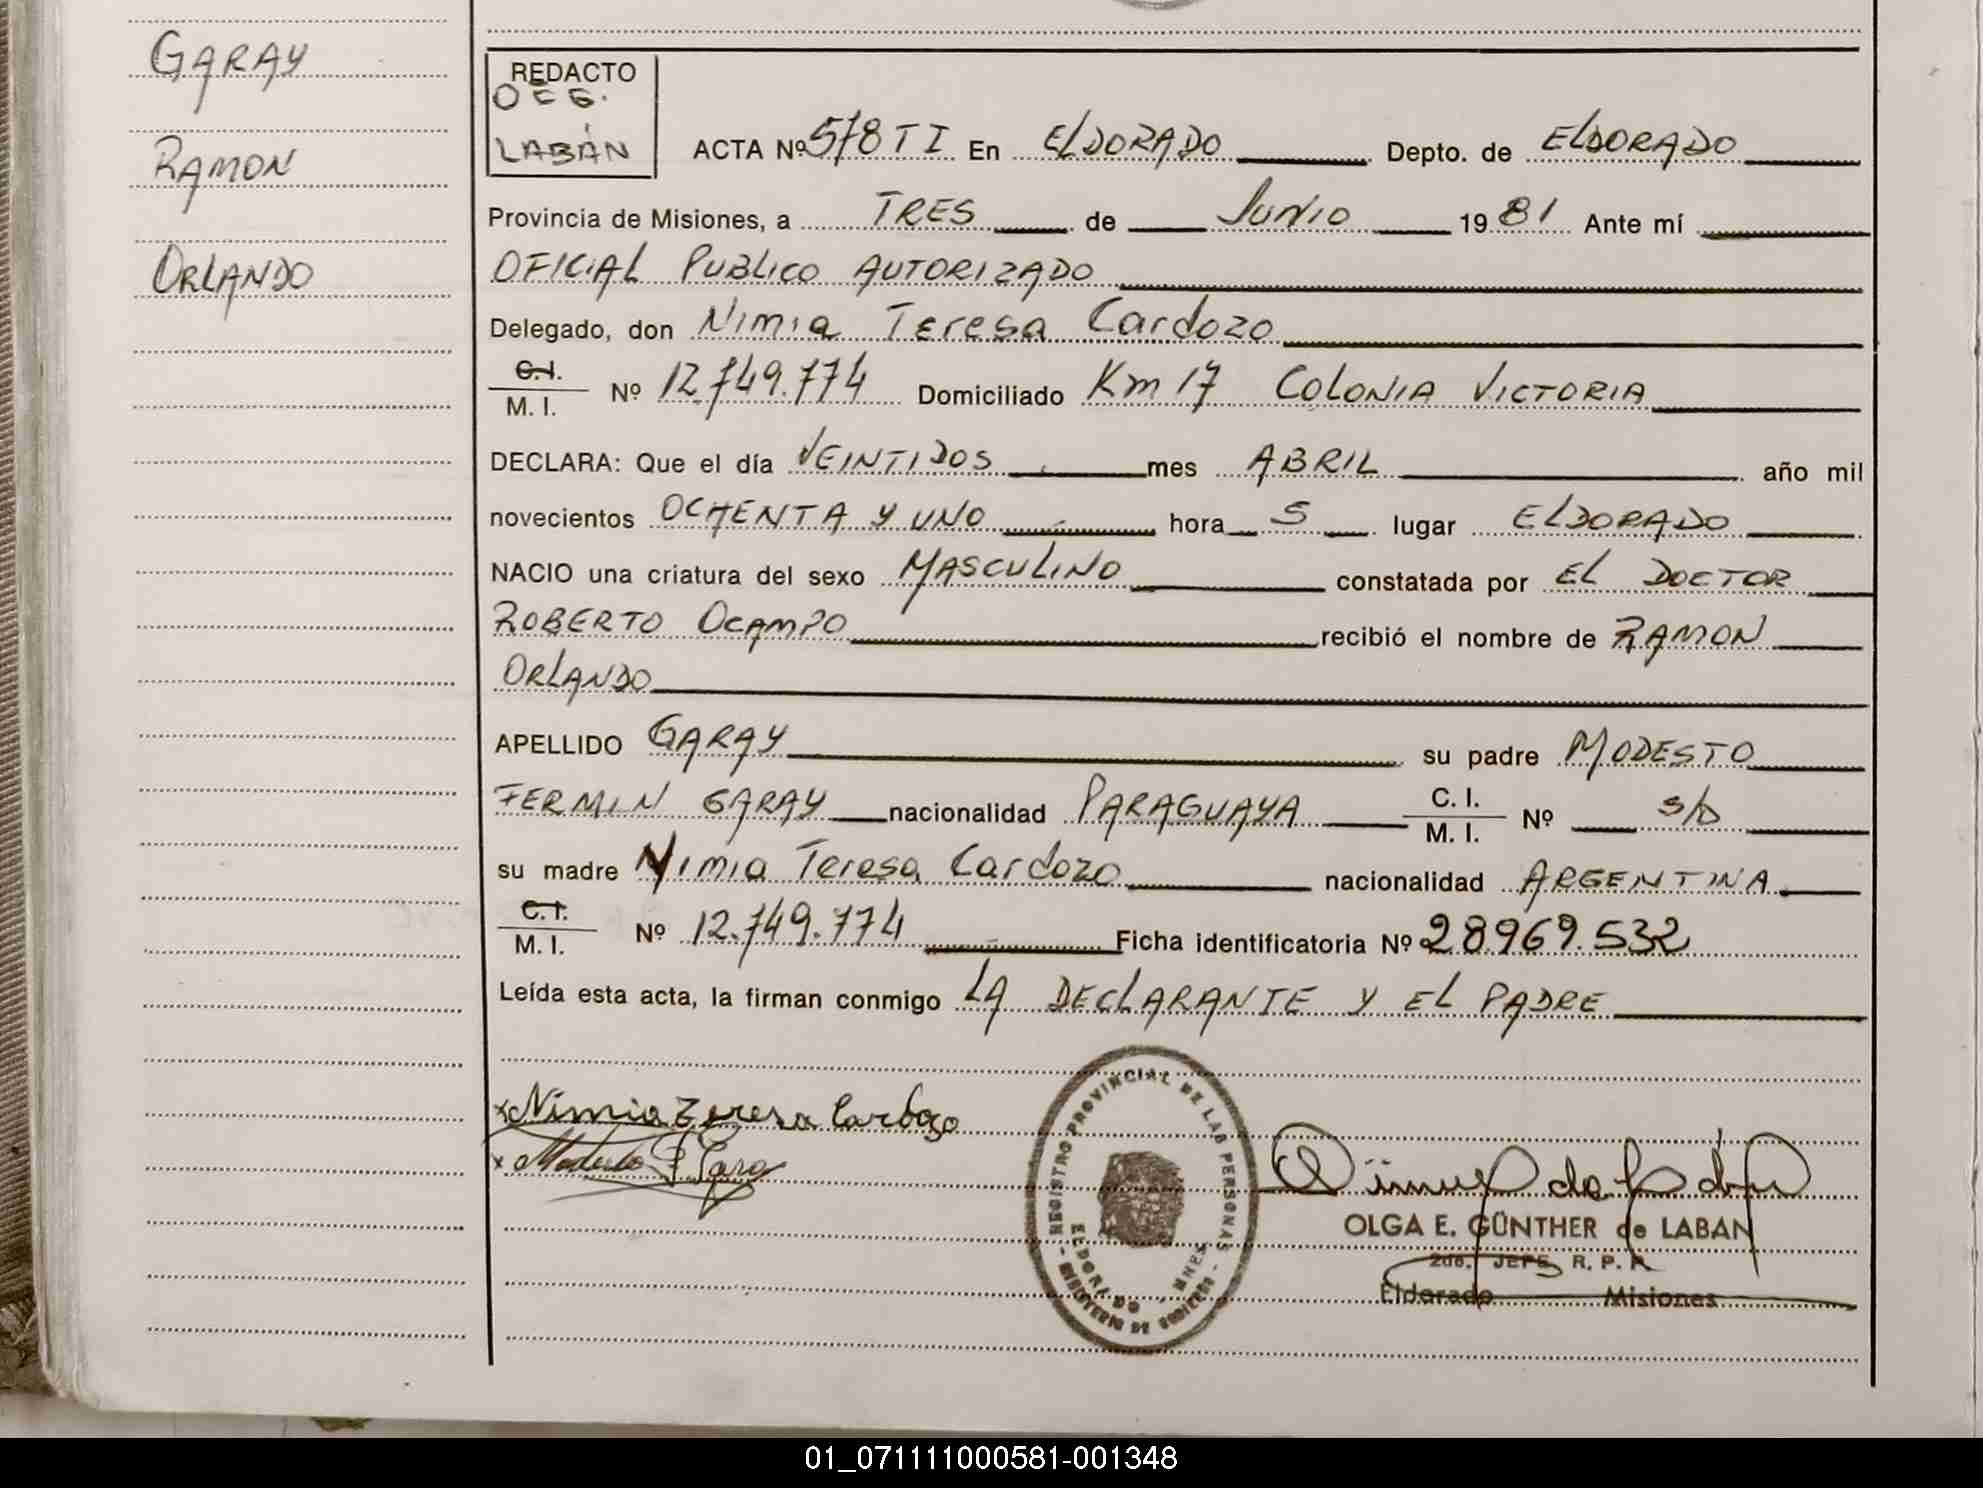 GARAY
RAMON
ORLANDO
REDACTO
OEG.
LABÁN
ACTA Nº 578 T I En ELDORADO Depto. de ELDORADO
Provincia de Misiones, a TRES de JUNIO 1981 Ante mí
OFICIAL PUBLICO AUTORIZADO
Delegado, don Nimia Teresa Cardozo
C.I.
M. I. Nº 12.749.774 Domiciliado Km 17 COLONIA VICTORIA
DECLARA: Que el día VEINTIDOS mes ABRIL año mil
novecientos OCHENTA Y UNO hora 5 lugar ELDORADO
NACIO una criatura del sexo MASCULINO constatada por EL DOCTOR
ROBERTO OCAMPO recibió el nombre de RAMON
ORLANDO
APELLIDO GARAY su padre MODESTO
FERMIN GARAY nacionalidad PARAGUAYA C. I. M. I. Nº s/D
su madre Nimia Teresa Cardozo nacionalidad ARGENTINA
C. I.
M. I. Nº 12.749.774 Ficha identificatoria Nº 28969.532
Leída esta acta, la firman conmigo LA DECLARANTE Y EL PADRE
x Nimia Teresa Cardozo
x Modesto F Garay
REGISTRO PROVINCIAL DE LAS PERSONAS
MINISTERIO DE GOBIERNO
ELDORADO MNES
OLGA E. GÜNTHER de LABAN
2do. JEFE R. P. P.
Eldorado Misiones
01_071111000581-001348